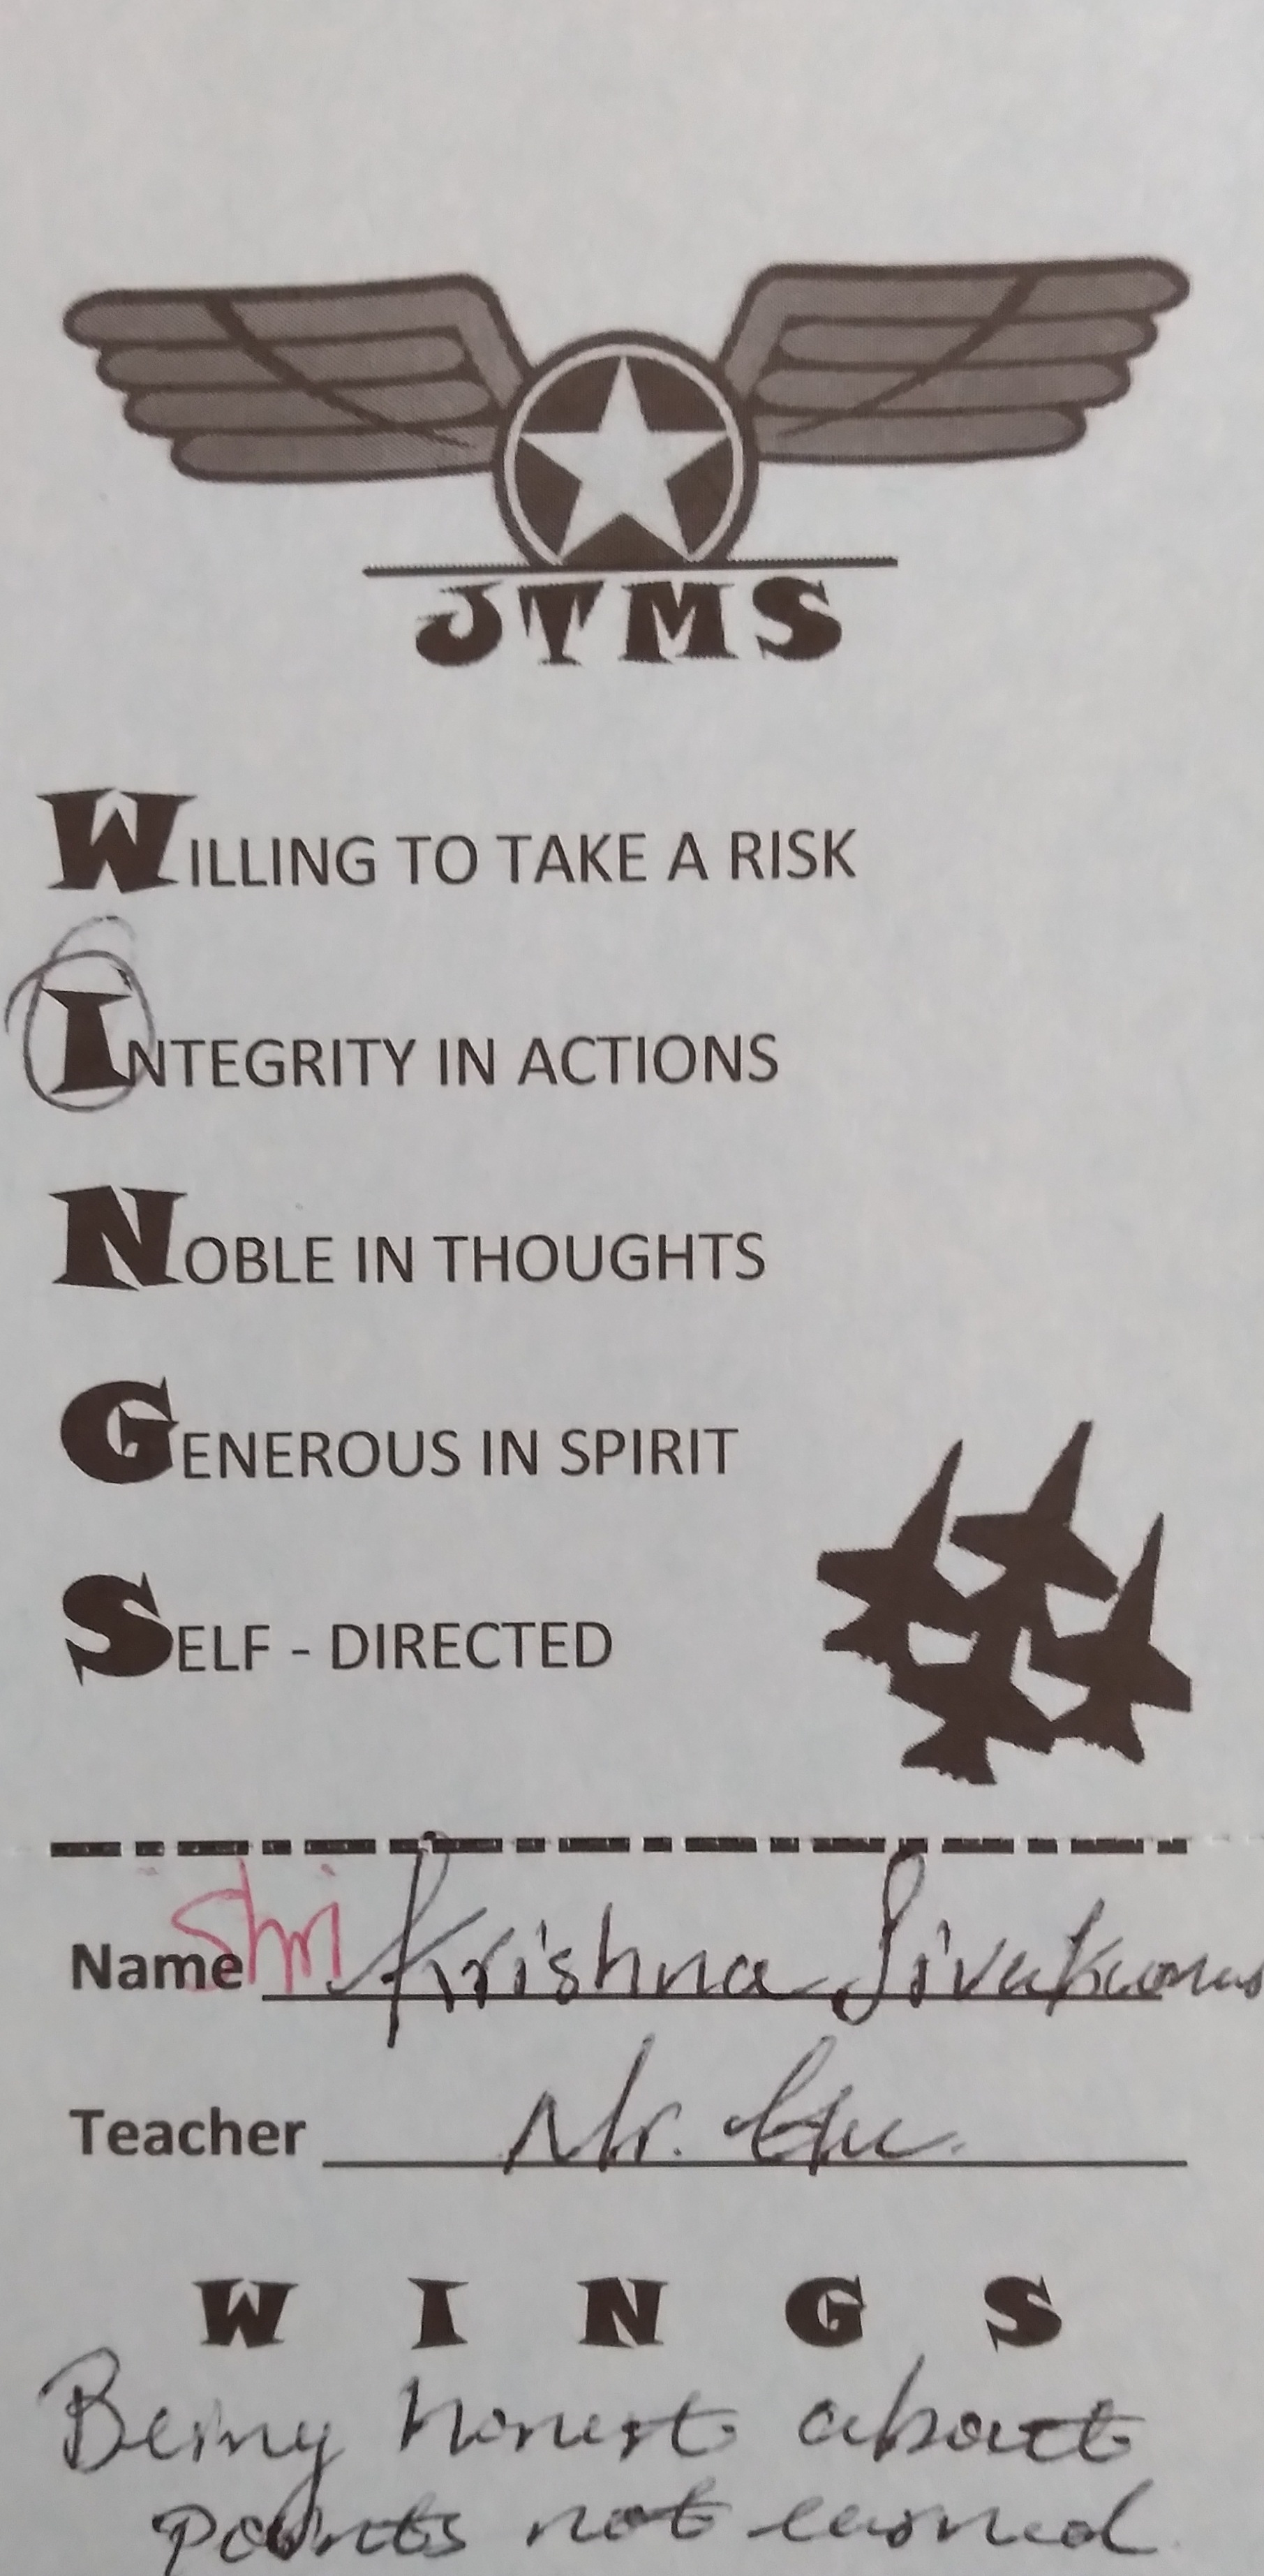 JTMS
WILLING TO TAKE A RISK
INTEGRITY IN ACTIONS
NOBLE IN THOUGHTS
GENEROUS IN SPIRIT
SELF - DIRECTED
Name Shri Krishna Sivakumar
Teacher Mr.
W I N G S
Being honest about
points not earned